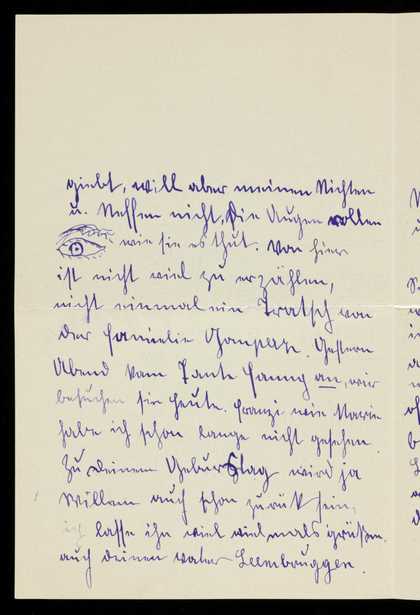 giebt, will aber meinen Nichten
u. Neffen nicht, die Augen rollen
wie sie es thut. Von hier
ist nicht viel zu erzählen,
nicht einmal ein Tratsch von
der Familie Gomperz. Gestern
Abend kam Tante Fanny an, wir
besuchen sie heute. Franzi wie Marie
habe ich schon lange nicht gesehen.
Zu deinem Geburtstag wird ja
Willem auch schon zurük sein,
ich lasse ihn viel vielmals grüßen.
auch deinen Vater Leembruggen.